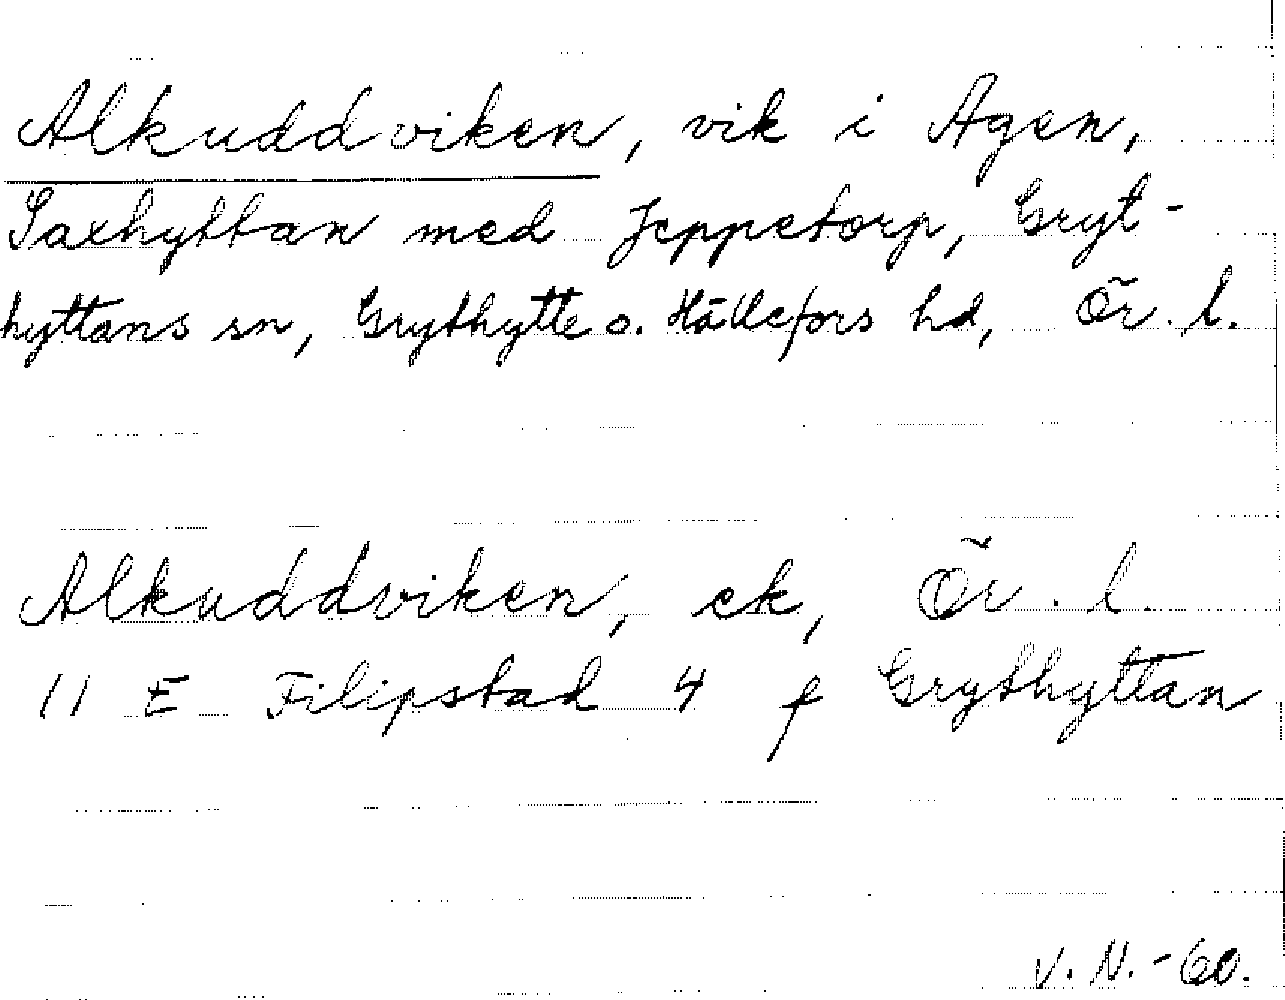 Alkuddviken, vik i Agen,
Saxhyttan med Jeppetorp, Gryt-
hyttans sn, Grythytte o. Hällefors hd, Ör. l.
Alkuddviken, ek, Ör. l.
11 E Filipstad 4 f Grythyttan
V. N. -60.